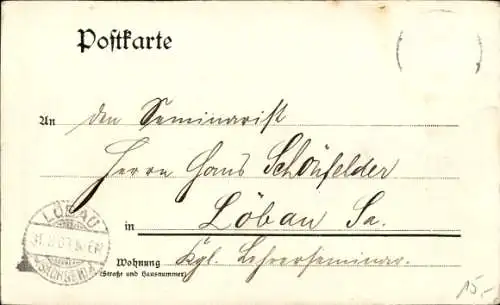 Postkarte
An den Seminarist
Herrn Hans Schönfelder
in Löbau Sa.
Wohnung Kgl. Lehrerseminar.
(Straße und Hausnummer)
LÖBAU
15,-